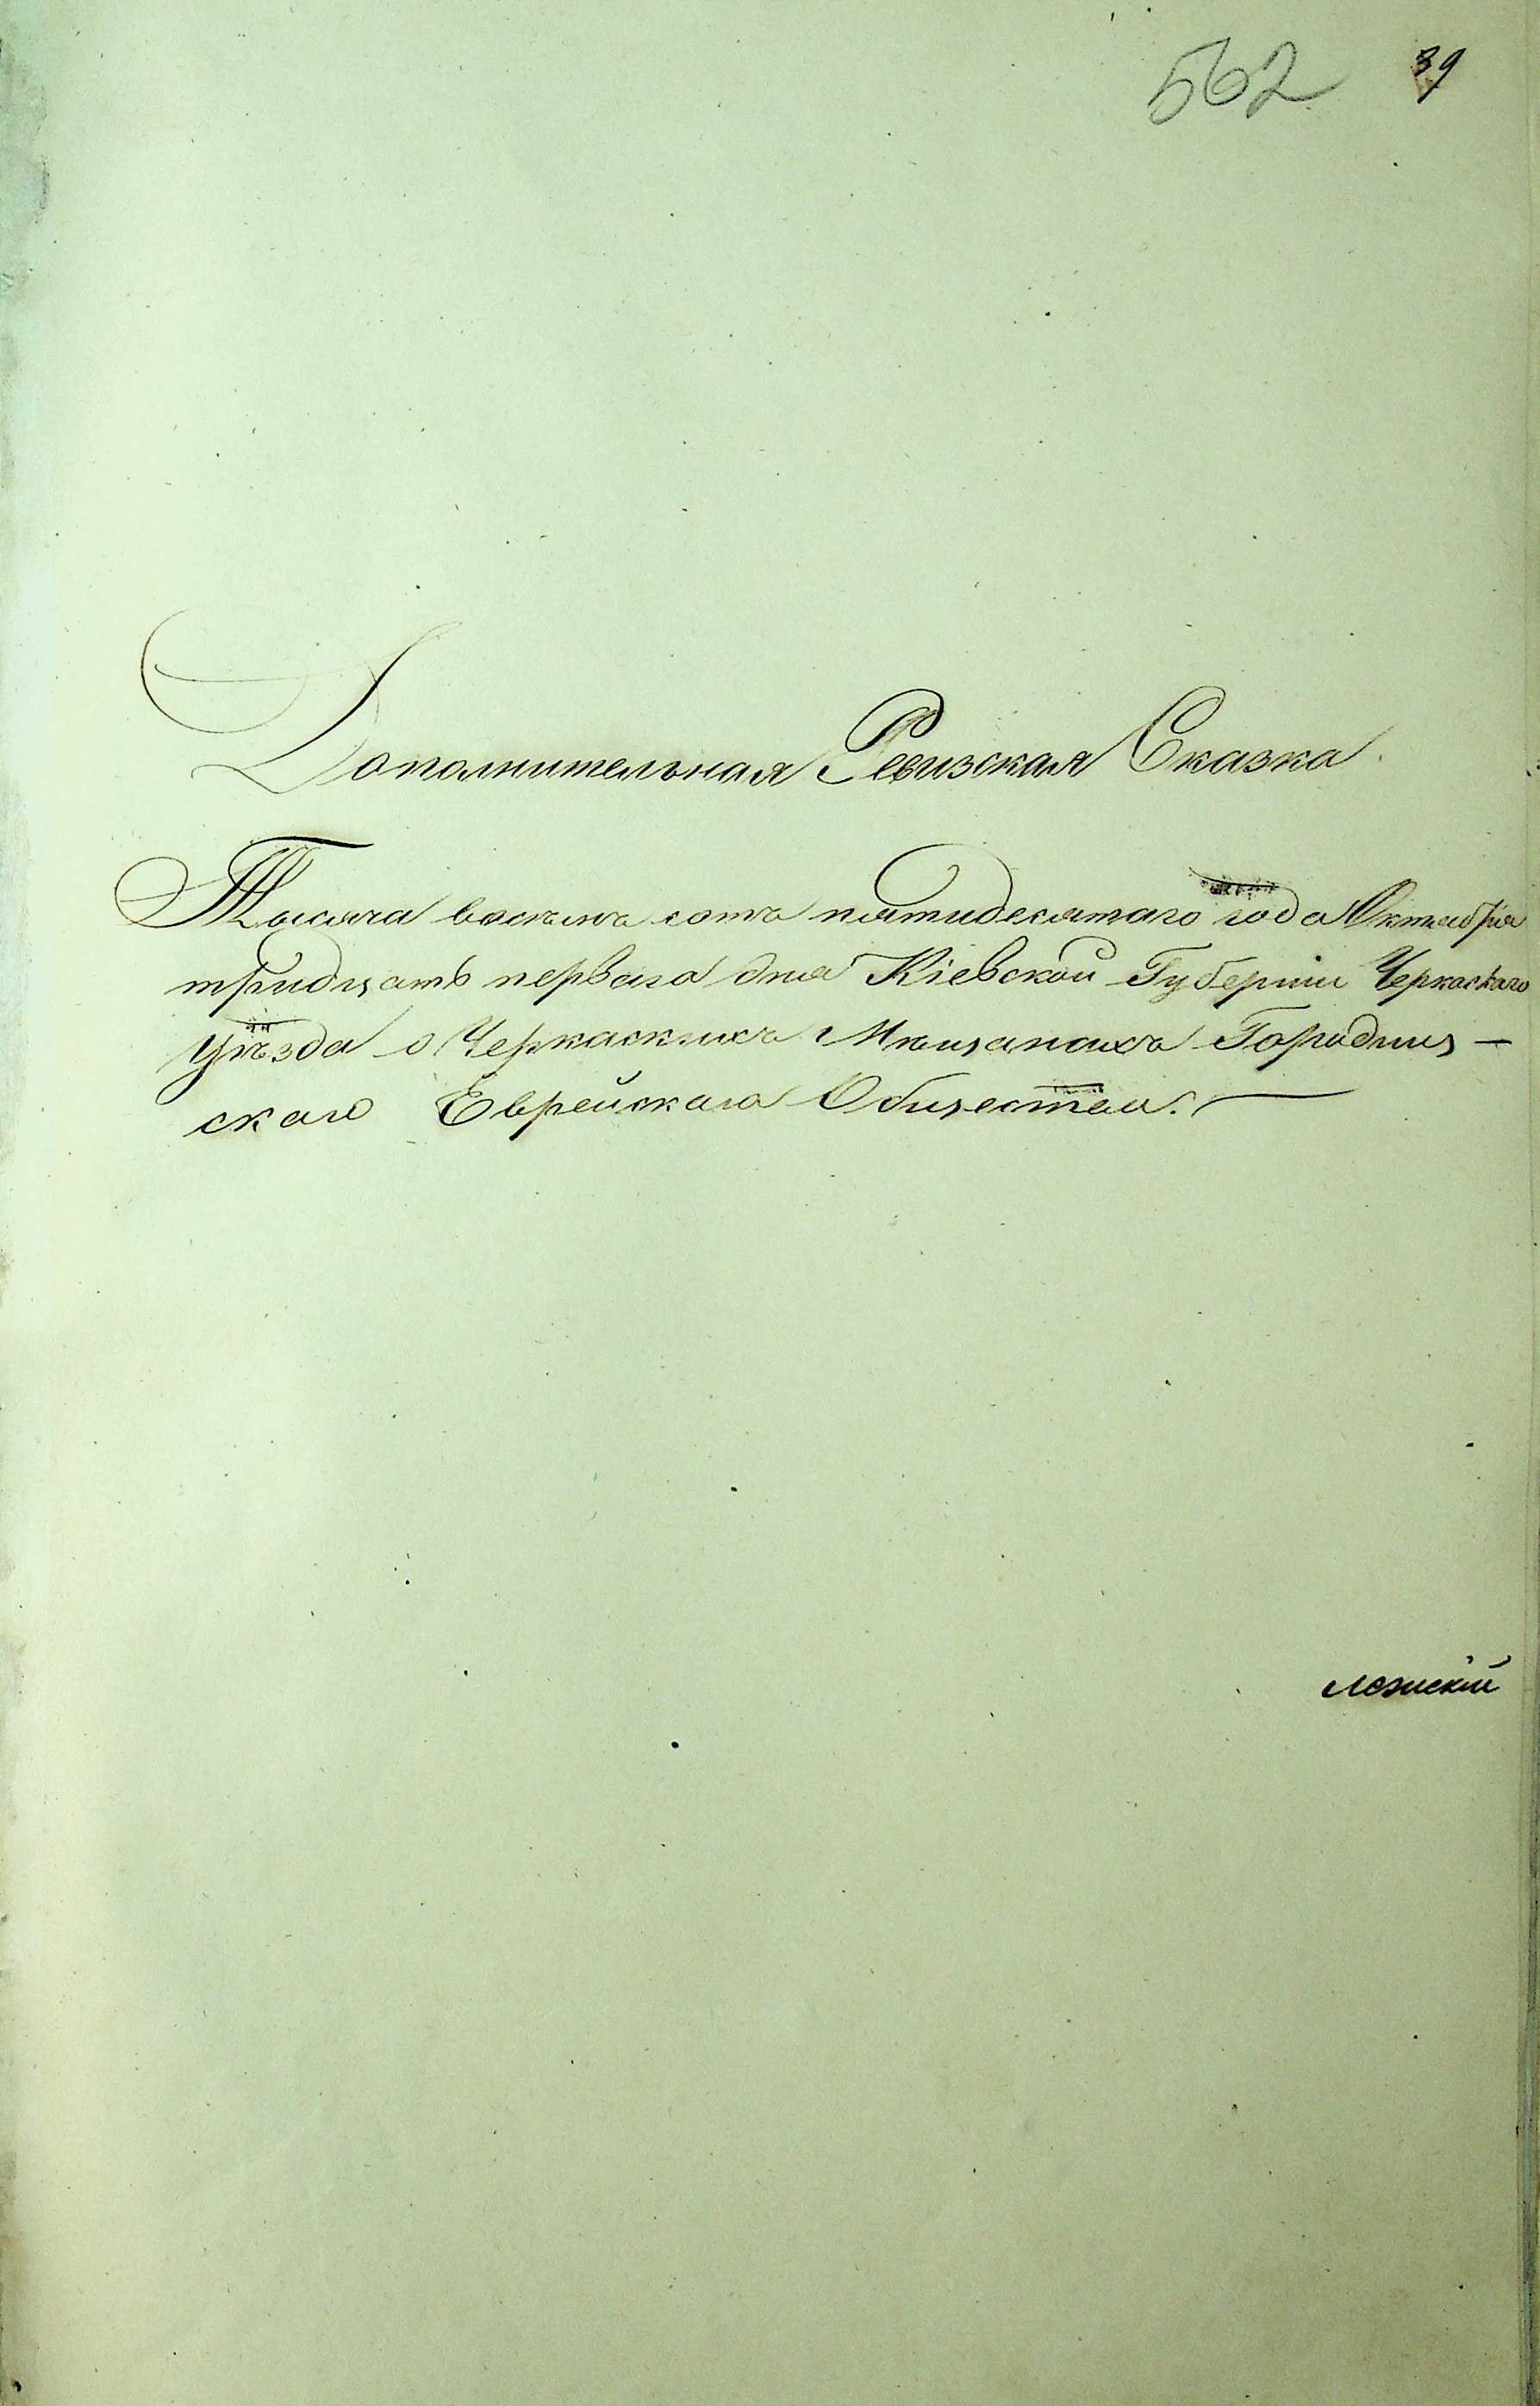 562 39
Дополнительная Ревизская Сказка
Тысяча восемь сотъ пятидесятаго года Октября
тридцать перваго дня Кіевской Губерніи Черкаскаго
уѣзда о Черкаскихъ Мѣщанахъ Городищ-
скаго Еврейскаго Общества.